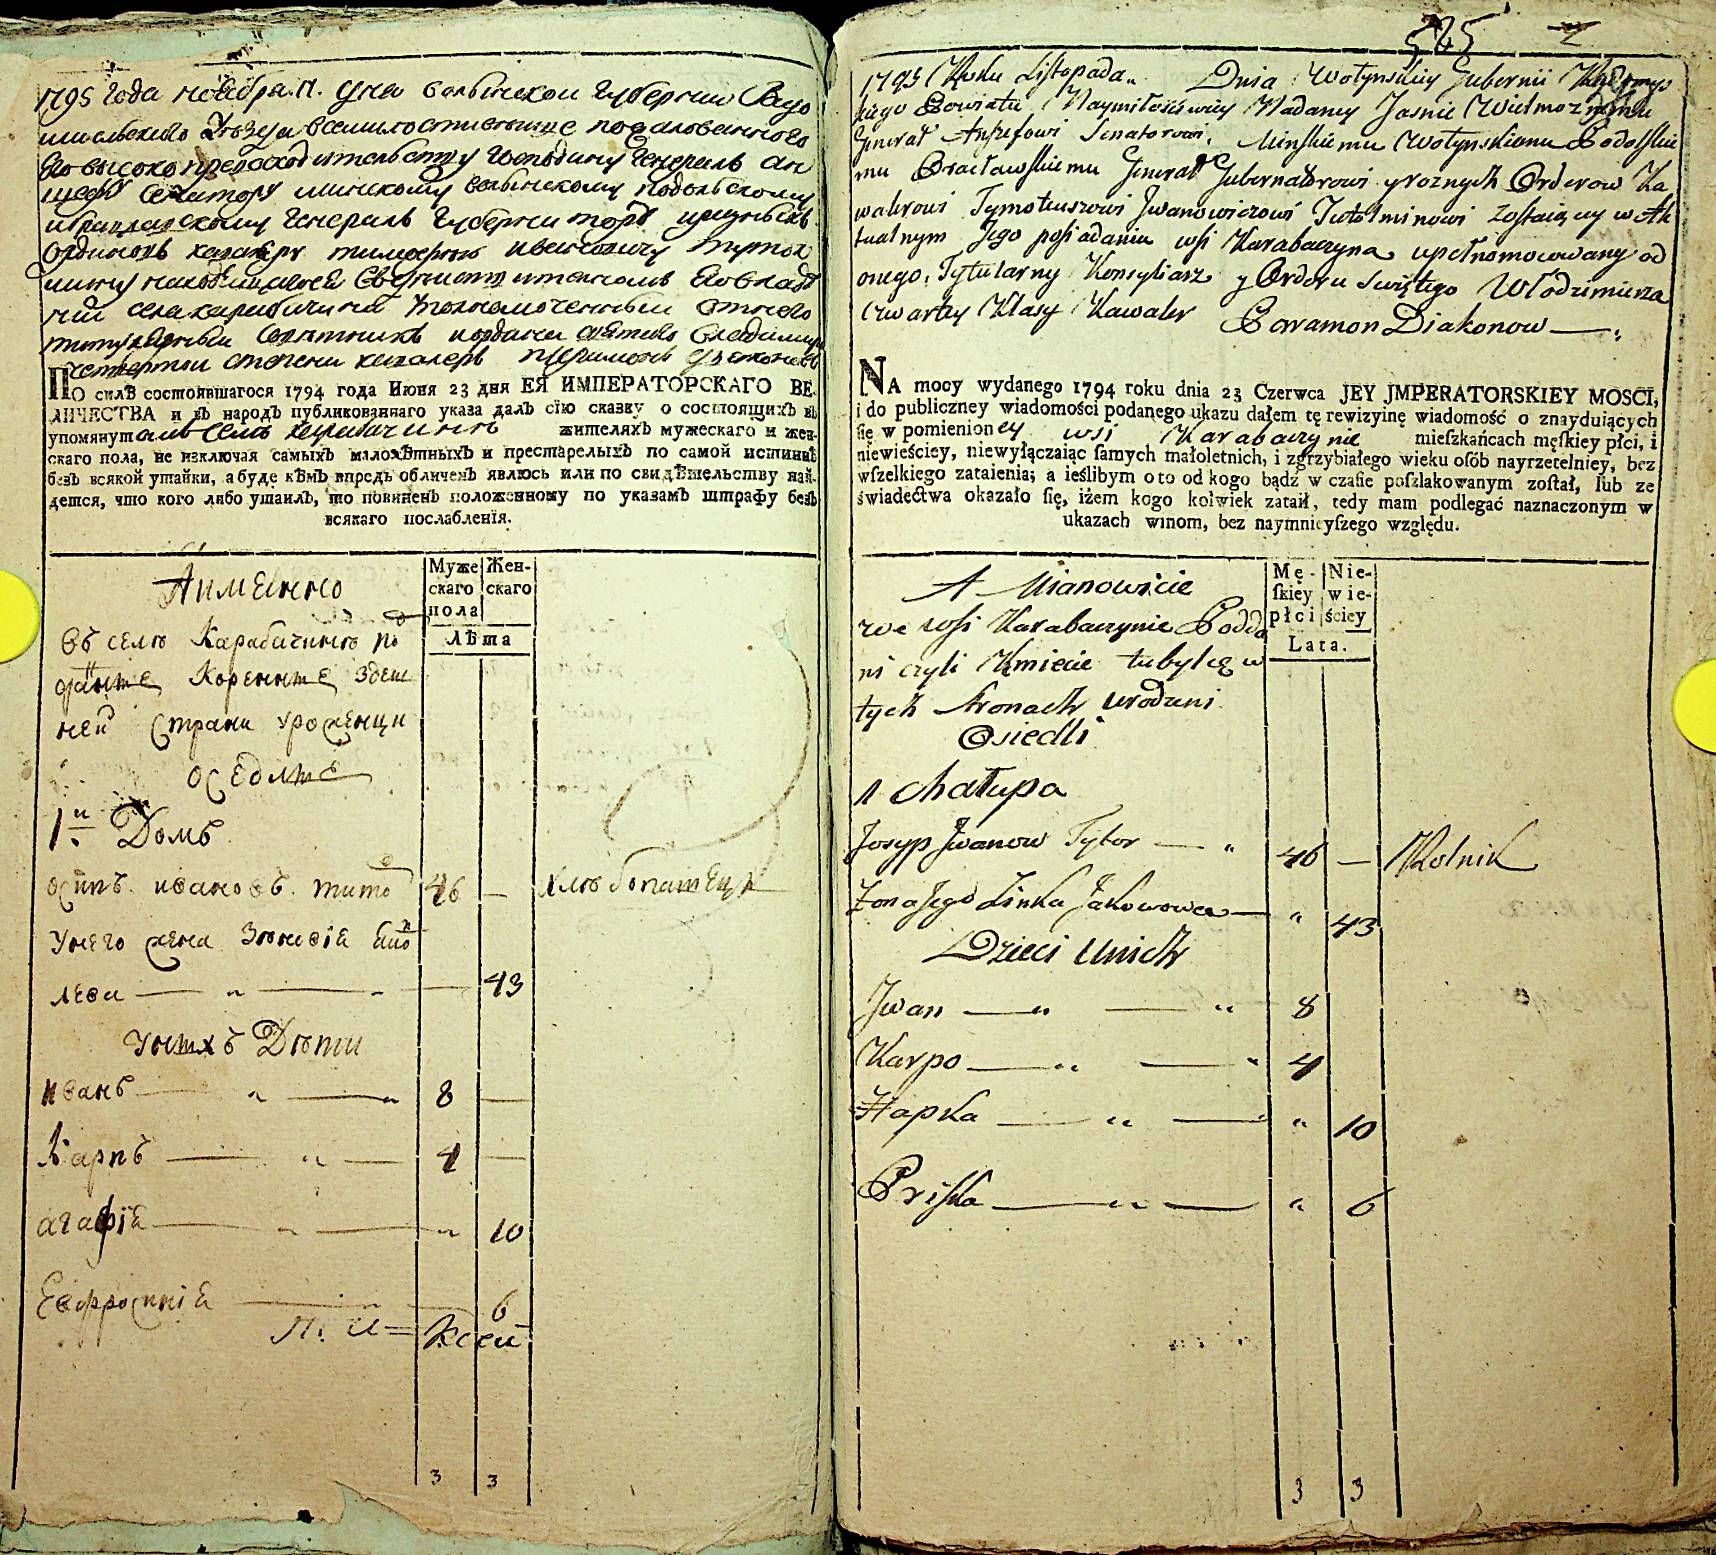 1795 года ноября 11. дня волынской губернии Радо
мысльского уезда всемилостивейше пожалованного
Его высокопревосходительству господину Генералъ ан
шефу сенатору минскому волынскому подольскому
и брацлавскому генералъ губернатору и разныхъ
орденовъ кавалеру тимофею ивановичу тутол
мину находящагося въ действительномъ Его владе
нии села карабачина уполномоченный отъ него
титулярный советникъ и ордена святаго владимира
четвертой степени кавалеръ парамонъ дьяконовъ
ПО силѣ состоявшагося 1794 года Июня 23 дня ЕЯ ИМПЕРАТОРСКАГО ВЕ-
ЛИЧЕСТВА и въ народъ публикованнаго указа далъ сїю сказку о состоящихъ въ
упомянутомъ селѣ карабачинѣ жителяхъ мужескаго и жен-
скаго пола, не изключая самыхъ малолѣтныхъ и престарелыхъ по самой истиннѣ
безъ всякой утайки, а буде кѣмъ впредь обличенъ явлюсь или по свидѣтельству най-
дется, что кого либо утаилъ, то повиненъ положенному по указамъ штрафу безъ
всякаго послабленїя.
А имЕнно
Муже
скаго
пола
Жен-
скаго
Лѣта
въ селѣ Карабачинѣ по
данные Коренные Здеш
ней Страны уроженци
осЕдлые
1й Домъ
осипъ ивановъ тито 46 — хлѣбопашЕцъ
У нЕго жена Зѣновiя яко
лева — „ — „ — 43
У нихъ Дѣти
иванъ — „ — „ 8 —
Карпъ — „ — 4 —
агафiя — „ — „ 10
Евфросинiя — „ — 6
3 3
525
1795 Roku Listopada „ Dnia Wołynskiey Gubernii Radomys
kiego Powiatu Naymiłosciwiey Nadaney Jasnie Wielmoznemu
Generał Anszefowi Senatorowi, Minskiemu Wołynskiemu Podolskie
mu Bracławskiemu Generał Gubernatorowi y roznych Orderow Ka
walerowi Tymoteuszowi Iwanowiczowi Tutolminowi zostaiącey w Ak
tualnym Jego posiadaniu wsi Karabaczyna upełnomocowany od
onego, Tytularny Konsyliarz y Orderu Swiętego Włodzimierza
Czwartey Klasy Kawaler Paramon Diakonow —
NA mocy wydanego 1794 roku dnia 23 Czerwca JEY JMPERATORSKIEY MOSCI,
i do publiczney wiadomości podanego ukazu dałem tę rewizyinę wiadomość o znayduiących
się w pomienioney wsi Karabaczynie mieſzkańcach męſkiey płci, i
niewieściey, niewyłączaiąc ſamych małoletnich, i zgrzybiałego wieku oſób nayrzetelniey, bez
wſzelkiego zataienia; a ieślibym o to od kogo bądź w czaſie poſzlakowanym zoſtał, lub ze
świadectwa okazało ſię, iżem kogo kolwiek zataił, tedy mam podlegać naznaczonym w
ukazach winom, bez naymnieyſzego względu.
A Mianowicie
Mę-
ſkiey
płci
Nie-
wie-
ściey
Lata.
we wsi Karabaczynie Podda
ni czyli Kmiecie tubylcy w
tych stronach urodzeni
Osiedli
1 Chałupa
Josyp Iwanow Tytor — „ 46 — Rolnik
Zona Jego Zinka Jakowowa — „ 43
Dzieci Unich
Jwan — „ — „ 8
Karpo — „ — „ 4
Hapka — „ — „ 10
Priska — „ — „ 6
3 3